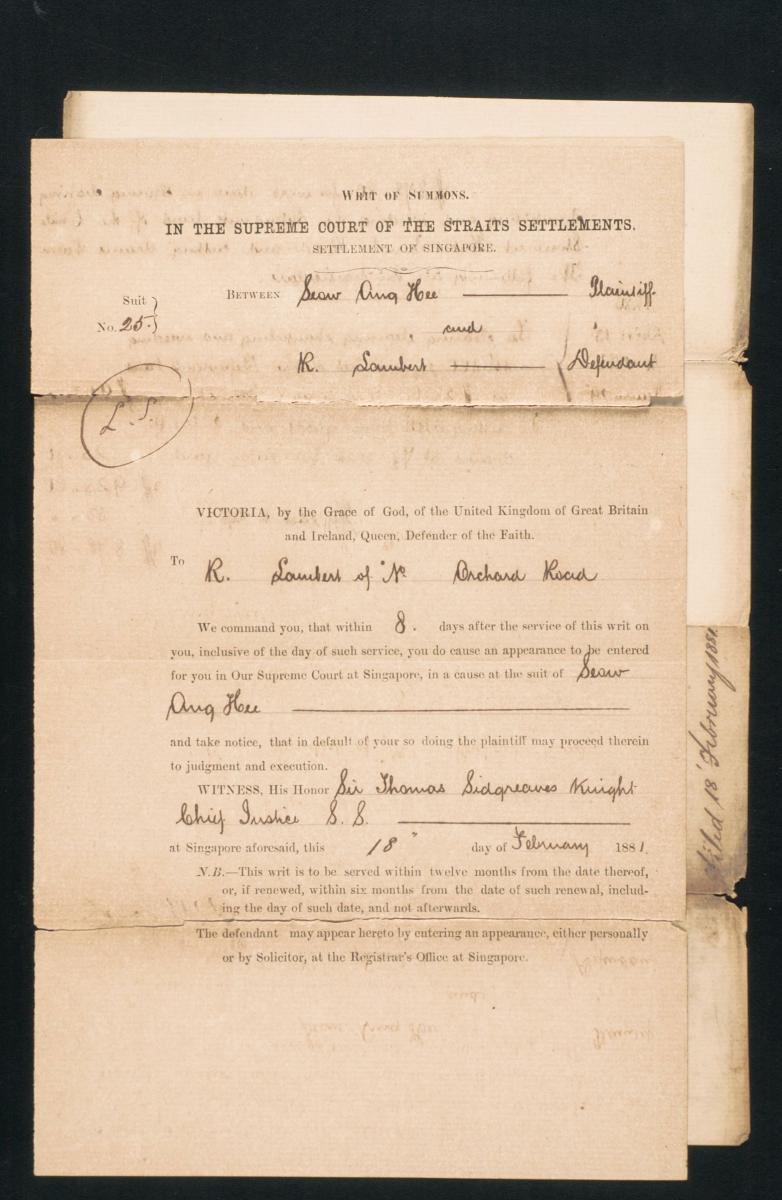 WRIT OF SUMMONS.
IN THE SUPREME COURT OF THE STRAITS SETTLEMENTS.
SETTLEMENT OF SINGAPORE.
Suit
No. 25.
BETWEEN Seow Ang Hee Plaintiff
and
R. Lambert Defendant
L. S.
VICTORIA, by the Grace of God, of the United Kingdom of Great Britain
and Ireland, Queen, Defender of the Faith.
To
R. Lambert of No Orchard Road
We command you, that within 8. days after the service of this writ on
you, inclusive of the day of such service, you do cause an appearance to be entered
for you in Our Supreme Court at Singapore, in a cause at the suit of Seow
Ang Hee
and take notice, that in default of your so doing the plaintiff may proceed therein
to judgment and execution.
WITNESS, His Honor Sir Thomas Sidgreaves Knight
Chief Justice S. S.
at Singapore aforesaid, this 18" day of February 1881.
N.B.—This writ is to be served within twelve months from the date thereof,
or, if renewed, within six months from the date of such renewal, includ-
ing the day of such date, and not afterwards.
The defendant may appear hereto by entering an appearance, either personally
or by Solicitor, at the Registrar's Office at Singapore.
Filed 18 February 1881